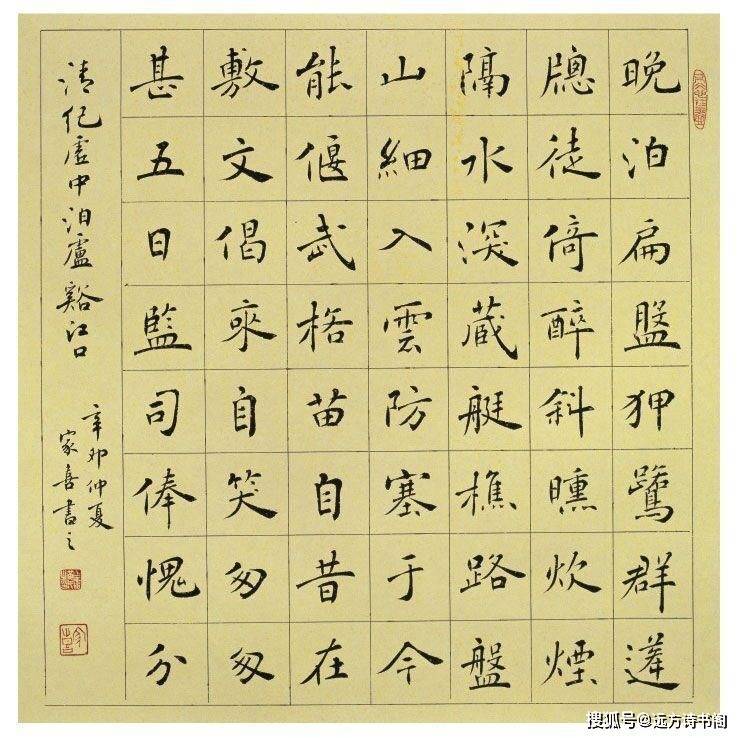 晚泊扁狎鷺群蓬
牕徒倚醉斜曛炊煙
隔水深藏艇樵路盤
山細入雲防塞于今
能偃武格苗自昔在
敷文偈來自笑匆匆
甚五日監司俸愧分
清紀虛中泊盧谿江口
辛卯仲夏
家喜書之
搜狐号@远方诗书阁